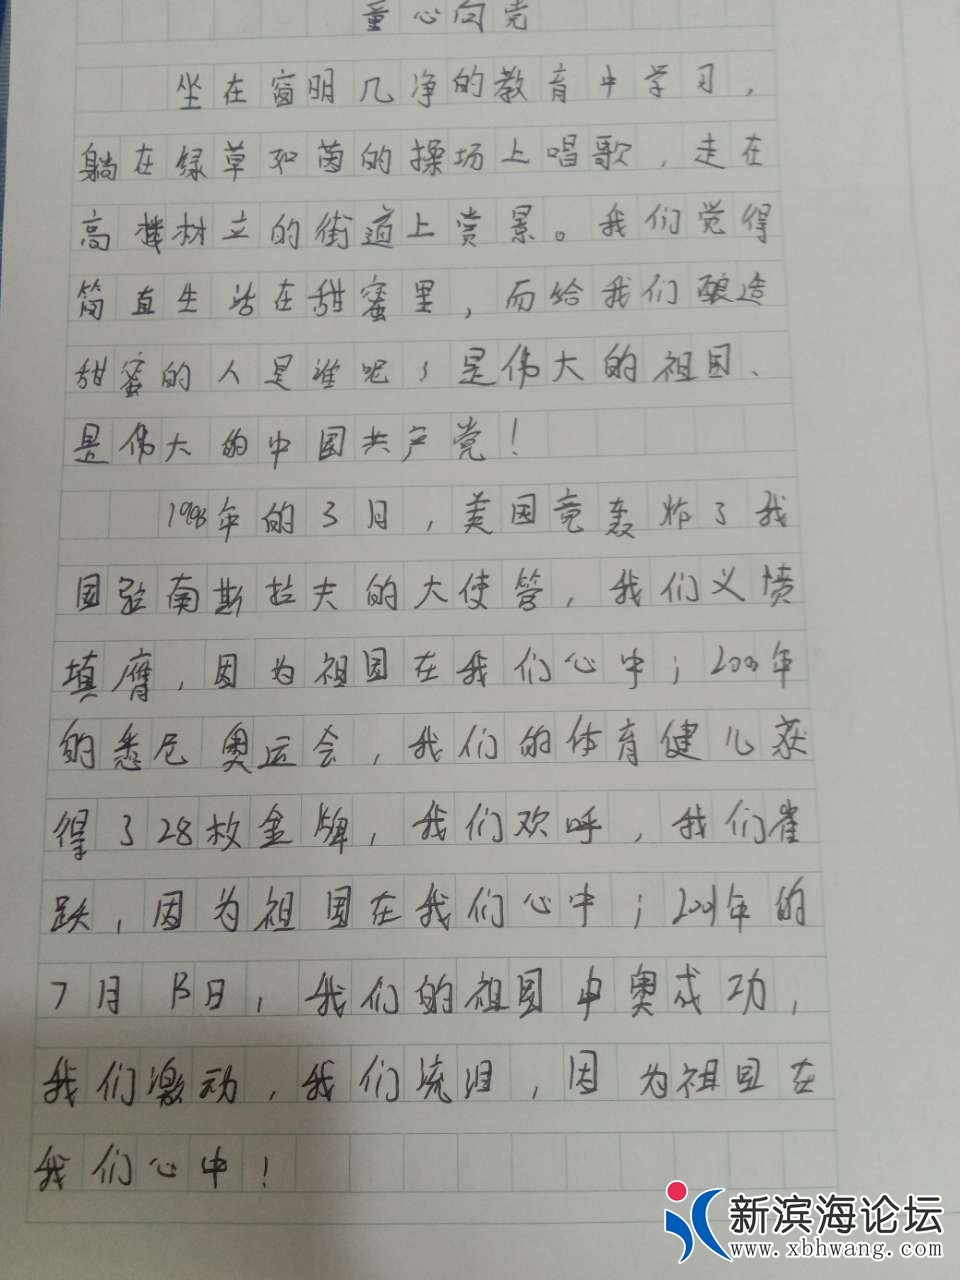 童心向党
坐在窗明几净的教育中学习，
躺在绿草如茵的操场上唱歌，走在
高楼林立的街道上赏景。我们觉得
简直生活在甜蜜里，而给我们酿造
甜蜜的人是谁呢？是伟大的祖国、
是伟大的中国共产党！
年的3月，美国竟轰炸了我
国驻南斯拉夫的大使管，我们义愤
填膺，因为祖国在我们心中；2000年
的悉尼奥运会，我们的体育健儿获
得了28枚金牌，我们欢呼，我们雀
跃，因为祖国在我们心中；2001年的
7月13日，我们的祖国申奥成功，
我们激动，我们流泪，因为祖国在
我们心中！
新滨海论坛
www.xbhwang.com